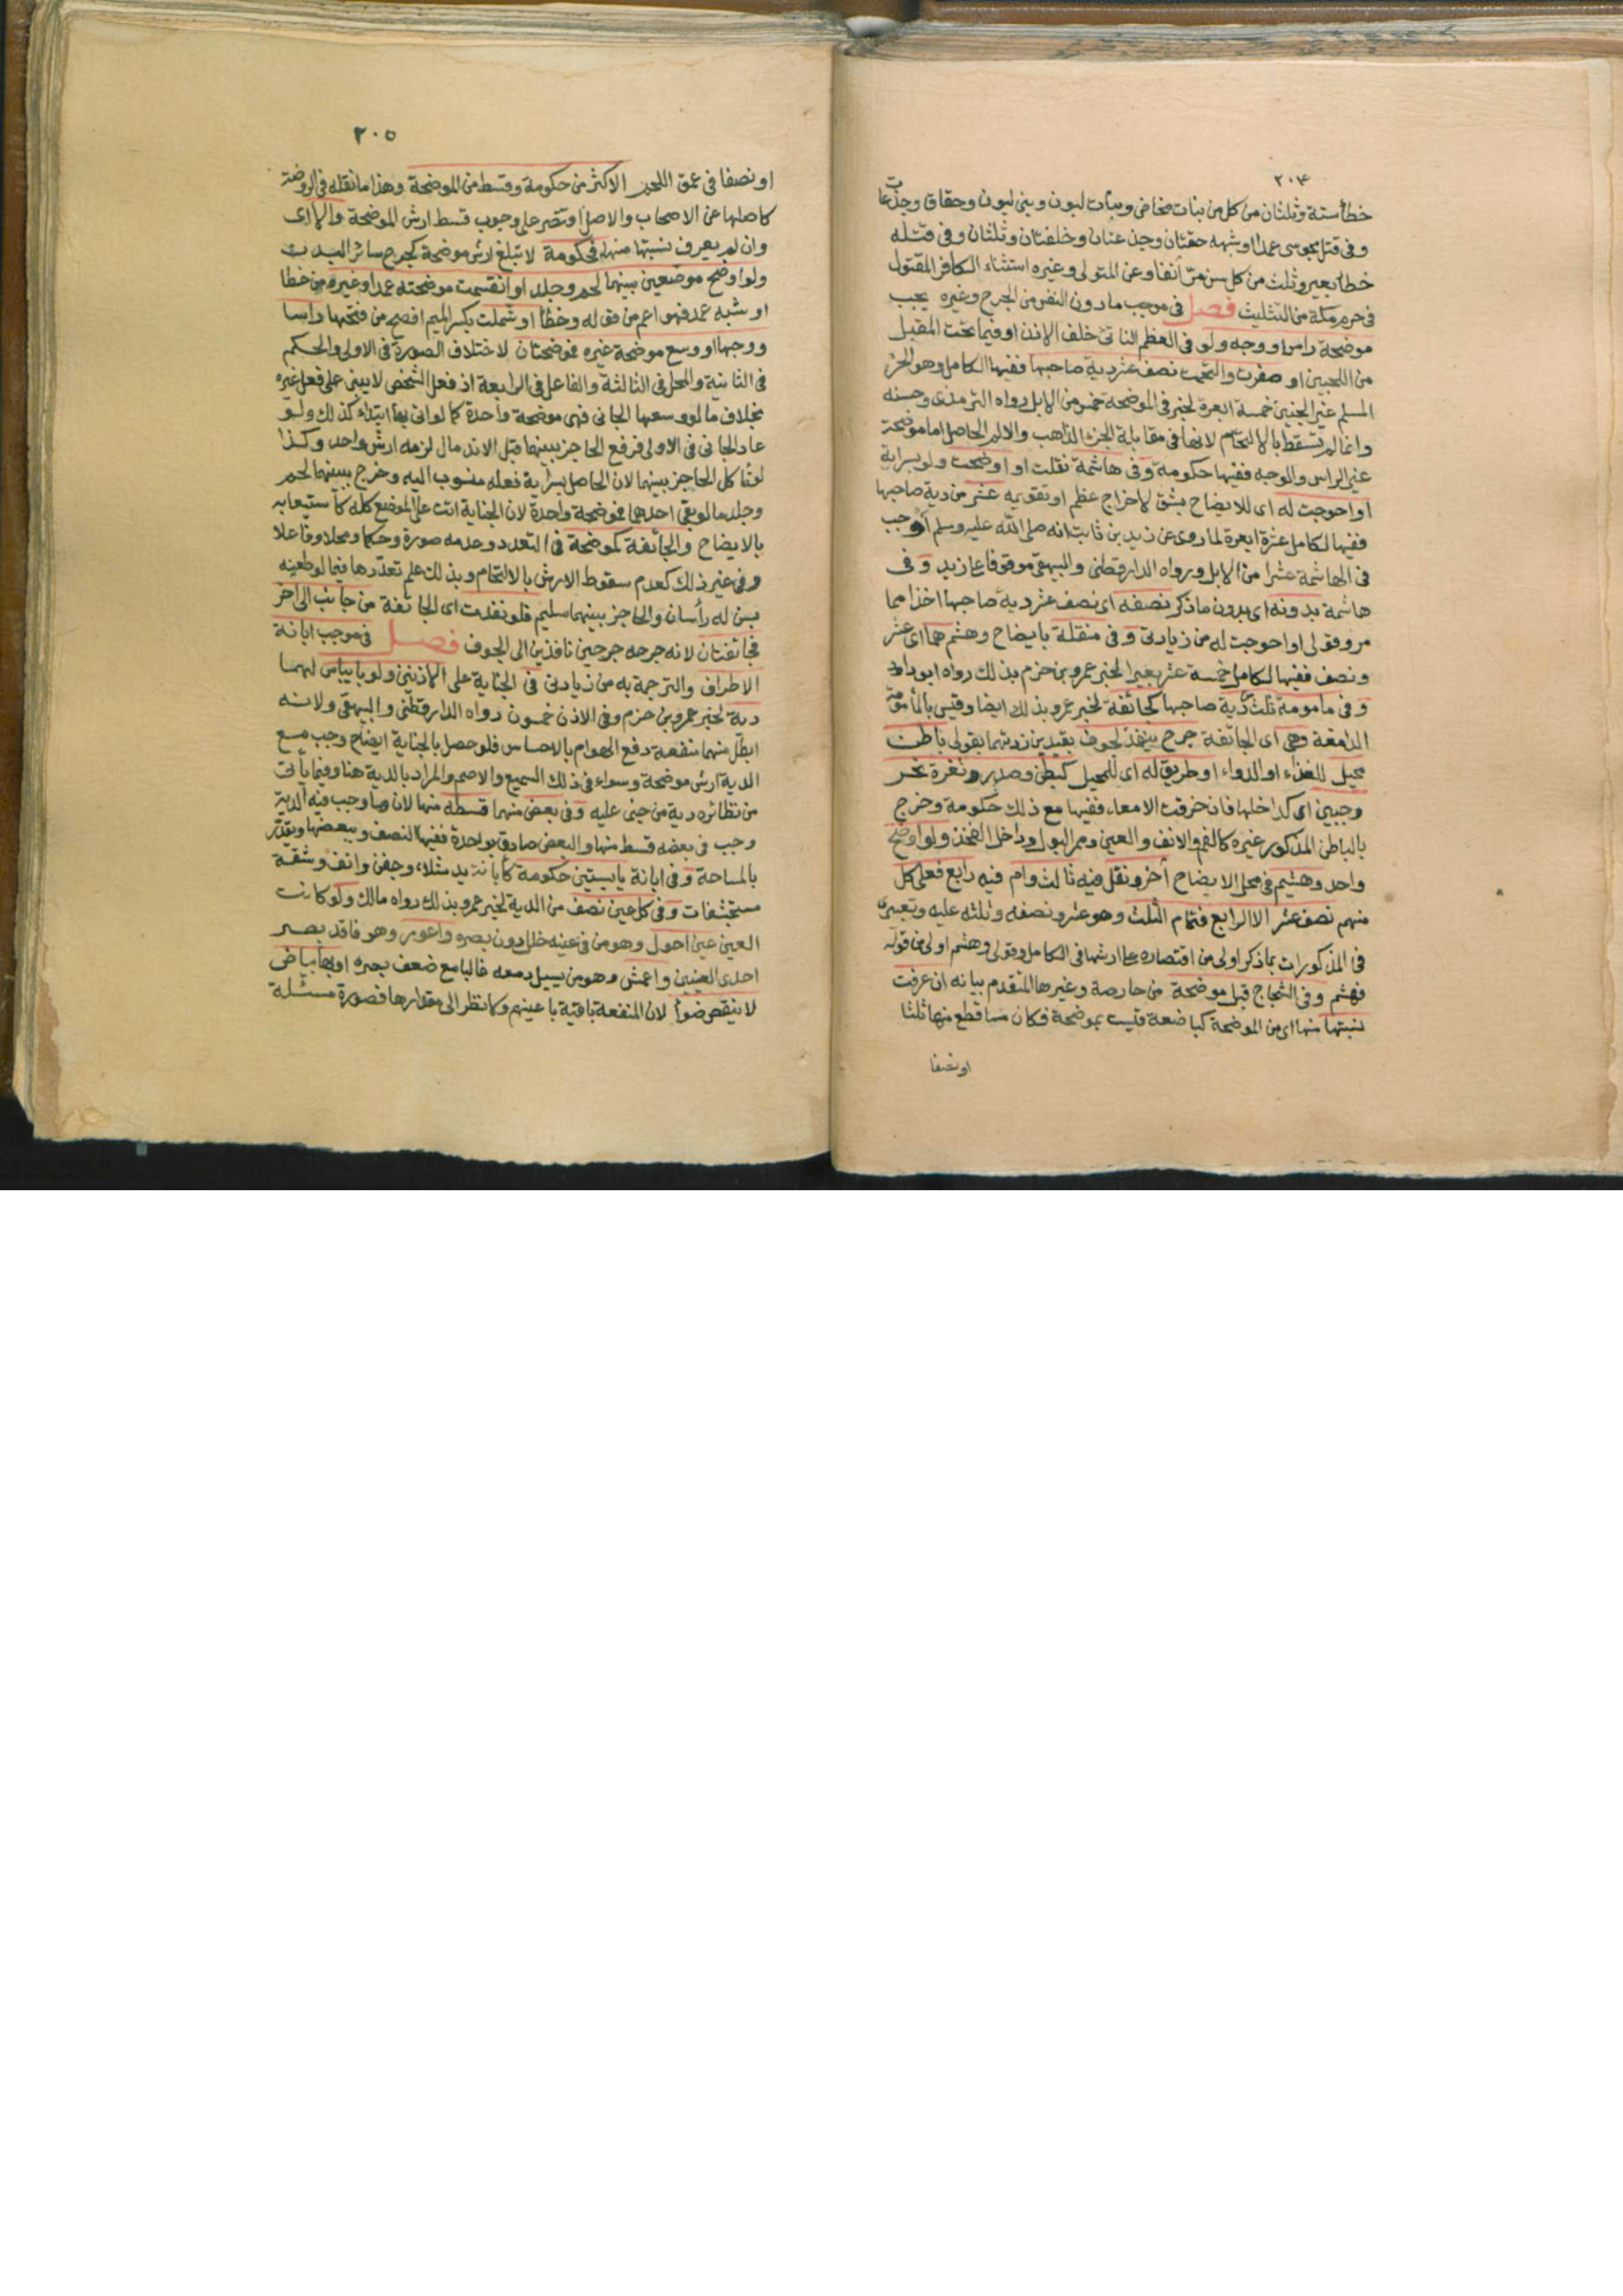 ٢٠٤
خطأ ستة وثلثان من كل من بنات مخاض وبنات لبون وبني لبون وحقاق وجذعات
وفى قتل مجوسى عمدا او شبهه حقتان وجذعتان وخلفتان وثلثان وفى قتله
خطأ بعير وثلث من كل سن مر آنفا وعن المتولى وغيره استثناء الكافر المقتول
فى حرم مكة من التثليث فصل فى موجب ما دون النفس من الجرح وغيره يجب
موضحة راس او وجه ولو فى العظم الناتئ خلف الاذن او فيما تحت المقبل
من اللحيين او صغرت والتحمت نصف عشر دية صاحبها ففيها الكامل وهو الحر
المسلم غير الجنين خمسة ابعرة لخبر فى الموضحة خمس من الابل رواه الترمذى وحسنه
وانما لم تسقط بالالتحام لانها فى مقابلة الجزء الذاهب والالم الحاصل اما موضحة
غير الراس والوجه ففيها حكومة وفى هاشمة نقلت او اوضحت ولو بسراية
او احوجت له اى للايضاح بشق لاخراج عظم او تقويمه عشر من دية صاحبها
ففيها لكامل عشرة ابعرة لما روى عن زيد بن ثابت انه صلى الله عليه وسلم اوجب
فى الهاشمة عشرا من الابل ورواه الدارقطنى والبيهقى موقوفا على زيد وفى
هاشمة بدونه اى بدون ما ذكر نصفه اى نصف عشر دية صاحبها اخذا مما
مر وقولى او احوجت له من زيادتى وفى منقلة بايضاح وهشم هما اى عشر
ونصف ففيها لكامل خمسة عشر بعيرا لخبر عمرو بن حزم بذلك رواه ابو داود
وفى مامومة ثلث دية صاحبها كجائفة لخبر عمرو بذلك ايضا وقيس بالمأمومة
الدامغة وهى اى الجائفة جرح ينفذ لجوف بقيدين زدتهما بقولى باطن
محيل للغذاء او الدواء او طريق له اى للمحيل كبطن وصدر وثغرة نحر
وجبين اى كداخلها فان خرقت الامعاء ففيها مع ذلك حكومة وخرج
بالباطن المذكور غيره كالفم والانف والعين وممر البول وداخل الفخذ ولو اوضح
واحد وهشم فى محل الايضاح آخر ونقل فيه ثالث وام فيه رابع فعلى كل
منهم نصف عشر الا الرابع فتمام الثلث وهو عشر ونصفه وثلثه عليه وتعبيرى
فى المذكورات بما ذكر اولى من اقتصاره على ارشها فى الكامل وقولى وهشم اولى من قوله
فهشم وفى الشجاج قبل موضحة من حارصة وغيرها المتقدم بيانه ان عرفت
نسبتها منها اى من الموضحة كباضعة قيست بموضحة فكان ما قطع منها ثلثا
او نصفا
٢٠٥
او نصفا فى عمق اللحم الاكثر من حكومة وقسط من الموضحة وهذا ما نقله فى الروضة
كاصلها عن الاصحاب والاصل اقتصر على وجوب قسط ارش الموضحة والا اى
وان لم يعرف نسبتها منها فحكومة لا تبلغ ارش موضحة كجرح سائر البدن
ولو اوضح موضعين بينهما لحم وجلد او انقسمت موضحته عمدا وغيره من خطا
او شبه عمد فهو اعم من قوله وخطأ او شملت بكسر الميم افصح من فتحها راسا
ووجها او وسع موضحة غيره فموضحتان لاختلاف الصورة فى الاولى والحكم
فى الثانية والمحل فى الثالثة والفاعل فى الرابعة اذ فعل الشخص لا يبنى على فعل غيره
بخلاف ما لو وسعها الجانى فهى موضحة واحدة كما لو اتى بها ابتداء كذلك ولو
عاد الجانى فى الاولى فرفع الحاجز بينهما قبل الاندمال لزمه ارش واحد وكذا
لو تآكل الحاجز بينهما لان الحاصل بسراية فعله منسوب اليه وخرج ببينهما لحم
وجلد ما لو بقى احدهما فموضحة واحدة لان الجناية اتت على الموضع كله كاستيعابه
بالايضاح والجائفة كموضحة فى التعدد وعدمه صورة وحكما ومحلا وفاعلا
وفى غير ذلك كعدم سقوط الارش بالالتحام وبذلك علم تعددها فيما لو طعنه
بسن له رأسان والحاجز بينهما سليم فلو نفذت اى الجائفة من جانب الى آخر
فجائفتان لانه جرحه جرحين نافذين الى الجوف فصل فى موجب ابانة
الاطراف والترجمة به من زيادتى فى الجناية على الاذنين ولو بايباس لهما
دية لخبر عمرو بن حزم وفى الاذن خمسون رواه الدارقطنى والبيهقى ولانه
ابطل منهما منفعة دفع الهوام بالاحساس فلو حصل بالجناية ايضاح وجب مع
الدية ارش موضحة وسواء فى ذلك السميع والاصم والمراد بالدية هنا وفيما يأتى
من نظائره دية من جنى عليه وفى بعض منهما قسطه منها لان ما وجب فيه الدية
وجب فى بعضه قسط منها والبعض صادق بواحدة ففيها النصف وببعضها ويقدر
بالمساحة وفى ابانة يابستين حكومة كابانة يد شلاء وجفن وانف وشفة
مستحشفات وفى كل عين نصف من الدية لخبر عمرو بذلك رواه مالك ولو كانت
العين عين احول وهو من فى عينه خلل دون بصره واعور وهو فاقد بصر
احدى العينين واعمش وهو من يسيل دمعه غالبا مع ضعف بصره او بها بياض
لا ينقص ضوأ لان المنفعة باقية باعينهم ولا نظر الى مقدارها فصورة مسئلة